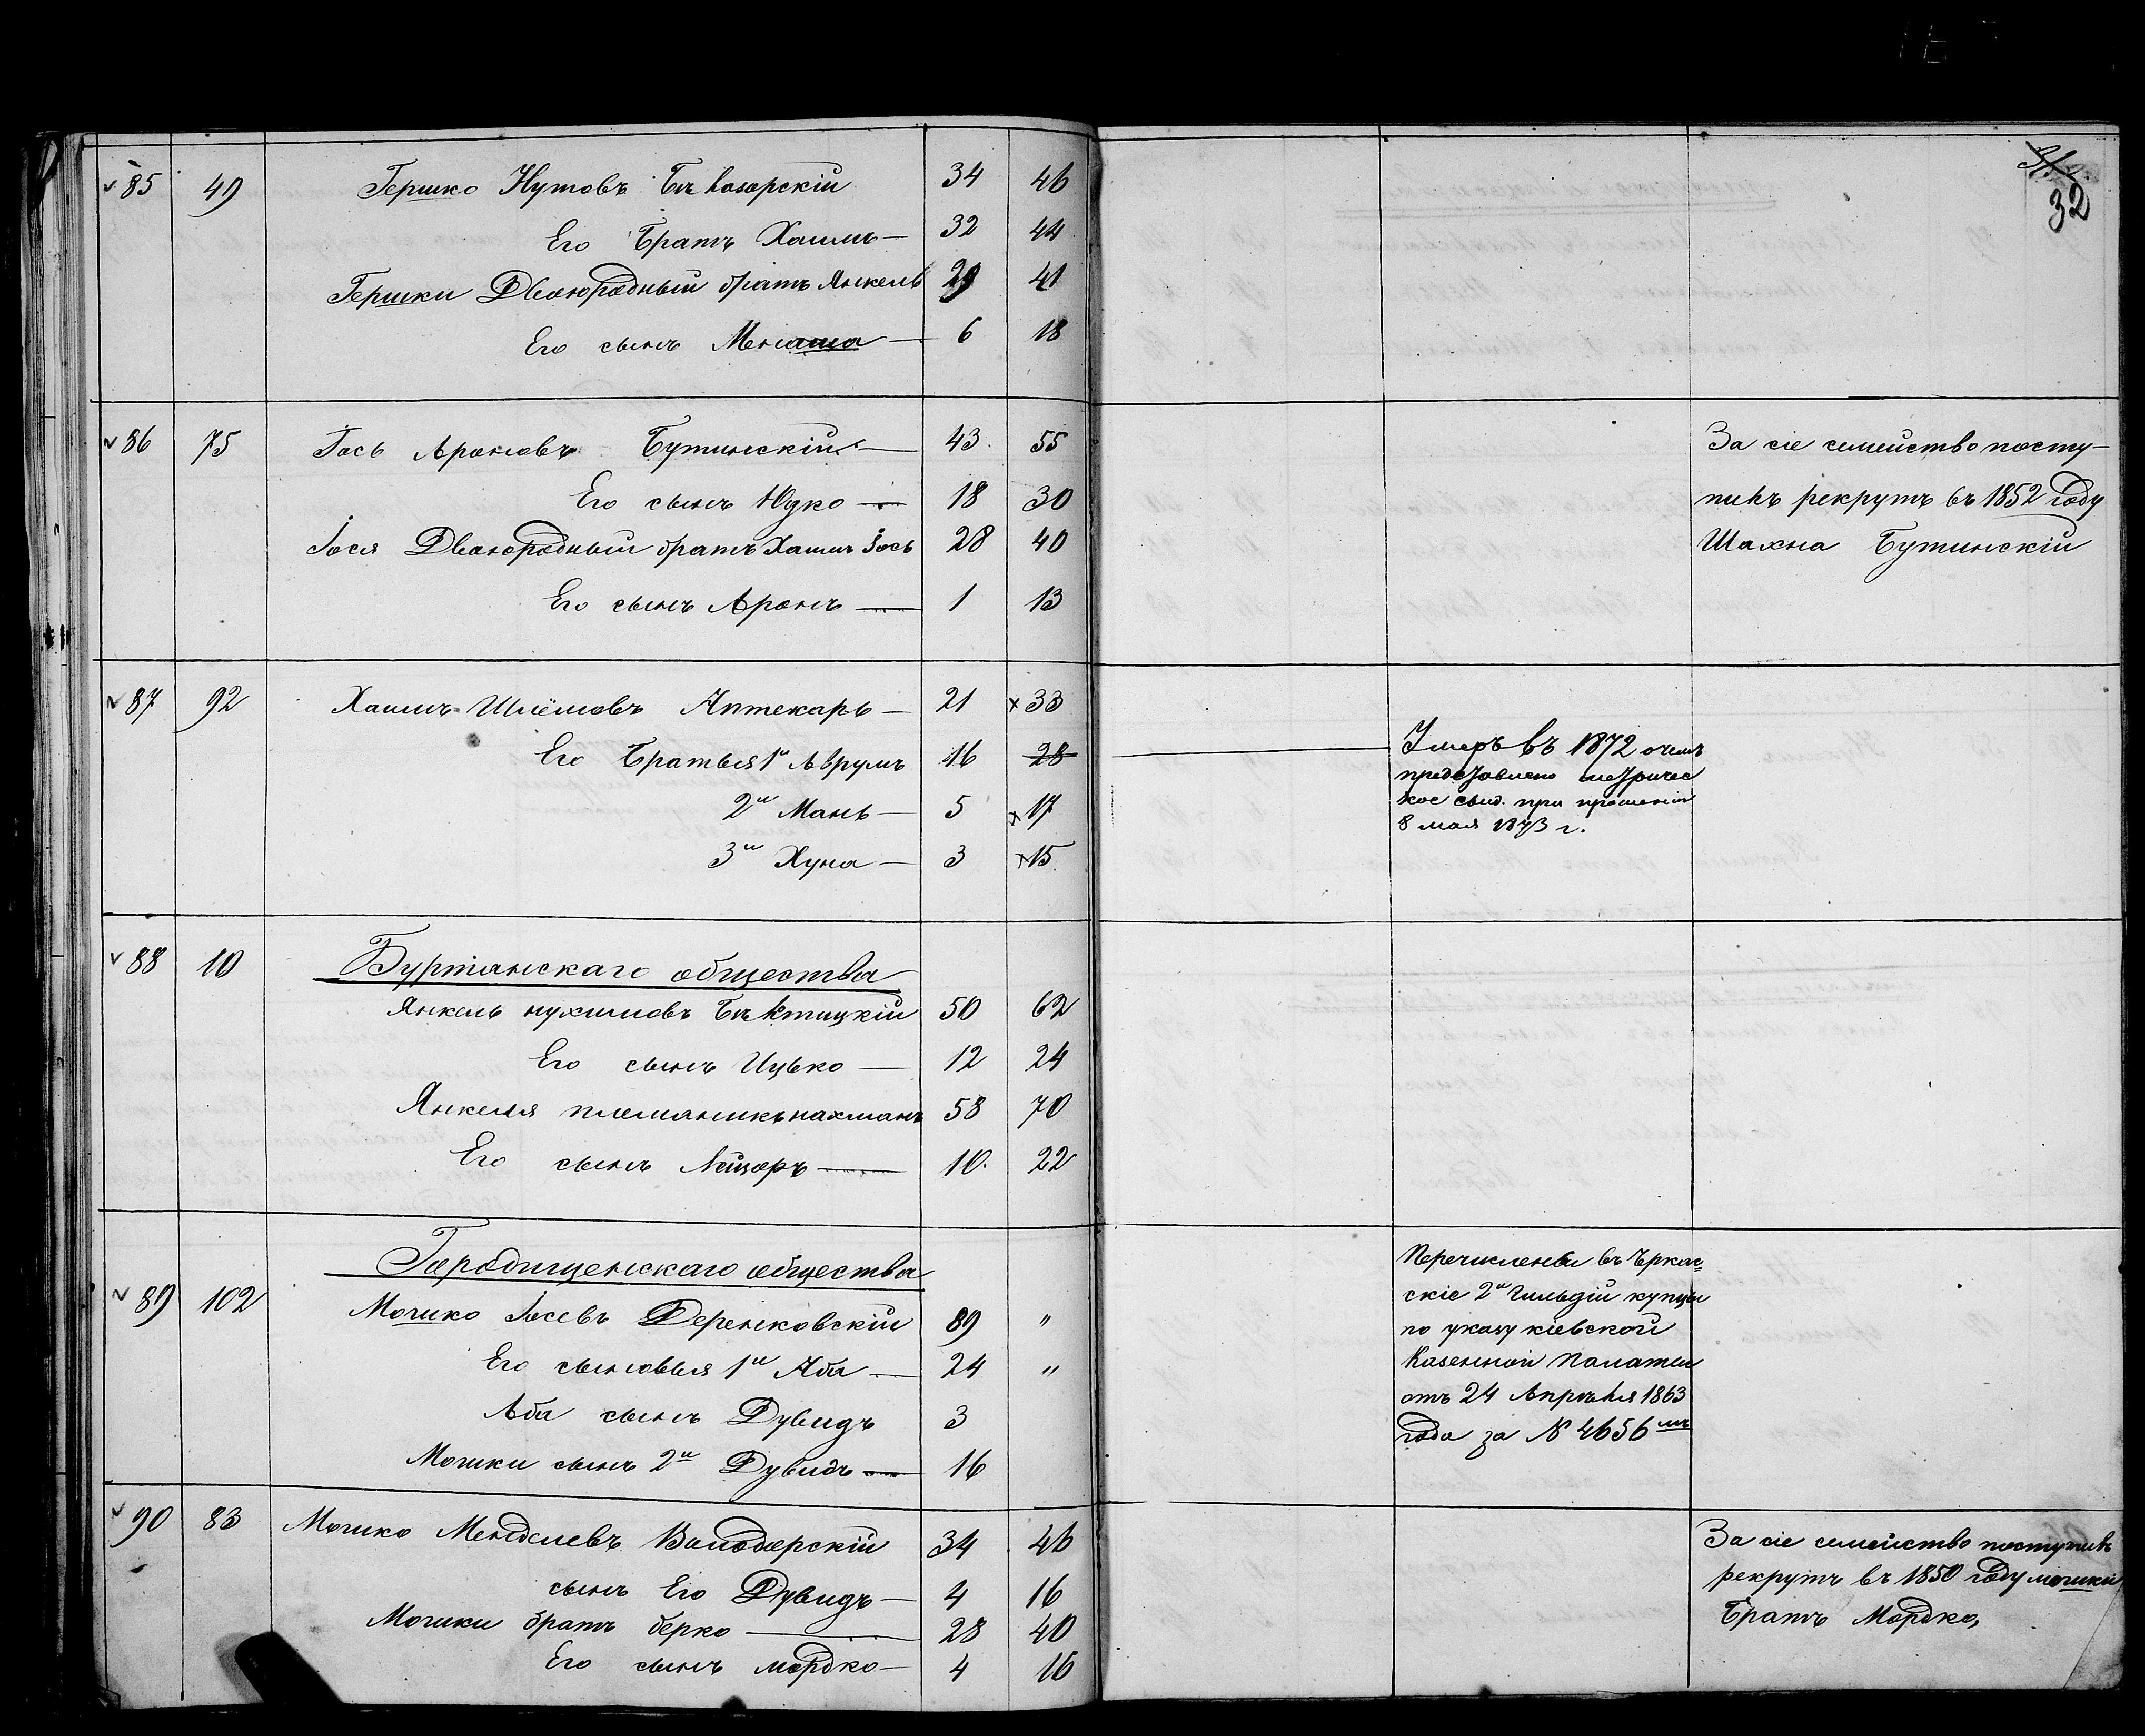 31. 32
85 49 Гершко Нутовъ Бѣлозорскій 34 46
Его Братъ Хаимъ — 32 44
Гершки Двоюродный братъ Янкель 29 41
Его сынъ Менаша — 6 18
86 75 Іось Ароновъ Бутинскій — 43. 55 За сіе семейство посту-
Его сынъ Юдко — 18 30 пилъ рекрутъ въ 1852 году
Іося Двоюродный братъ Хаимъ Іось 28 40 Шахна Бутинскій
Его сынъ Аронъ — 1 13
87 92 Хаимъ Шлёмовъ Аптекарь — 21 х 33
Его Братья 1й Аврумъ 16 28 Умеръ въ 1872 о чемъ
представлено метричес
2й Мань — 5 х 17 кое свид. при прошеніи
8 мая 1873 г.
3й Хуна — 3 х 15.
88 10 Буртянскаго общества
Янкель нухимовъ Бѣлтицкій 50 62
Его сынъ Ицько — 12 24
Янкеля племяникъ нахманъ 58 70
Его сынъ Лейзоръ — 10. 22
Городищенскаго общества Перечислены въ Черкас=
89 102 Мошко Іосевъ Деренковскій 89 " скіе 2й Гильдіи купцы
по указу кіевской
Его сыновья 1й Аба — 24 " Казенной Палаты
Аби сынъ Дувидъ 3 отъ 24 Апрѣля 1863
Мошки сынъ 2й Дувидъ — 16 года за № 4656мъ
90 83 Мошко Менделевъ Володарскій 34 46 За сіе семейство поступилъ
сынъ Его Дувидъ — 4 16 рекрутъ въ 1850 году мошки
Мошки братъ берко — 28 40 Братъ Мордко,
Его сынъ мордко — 4 16